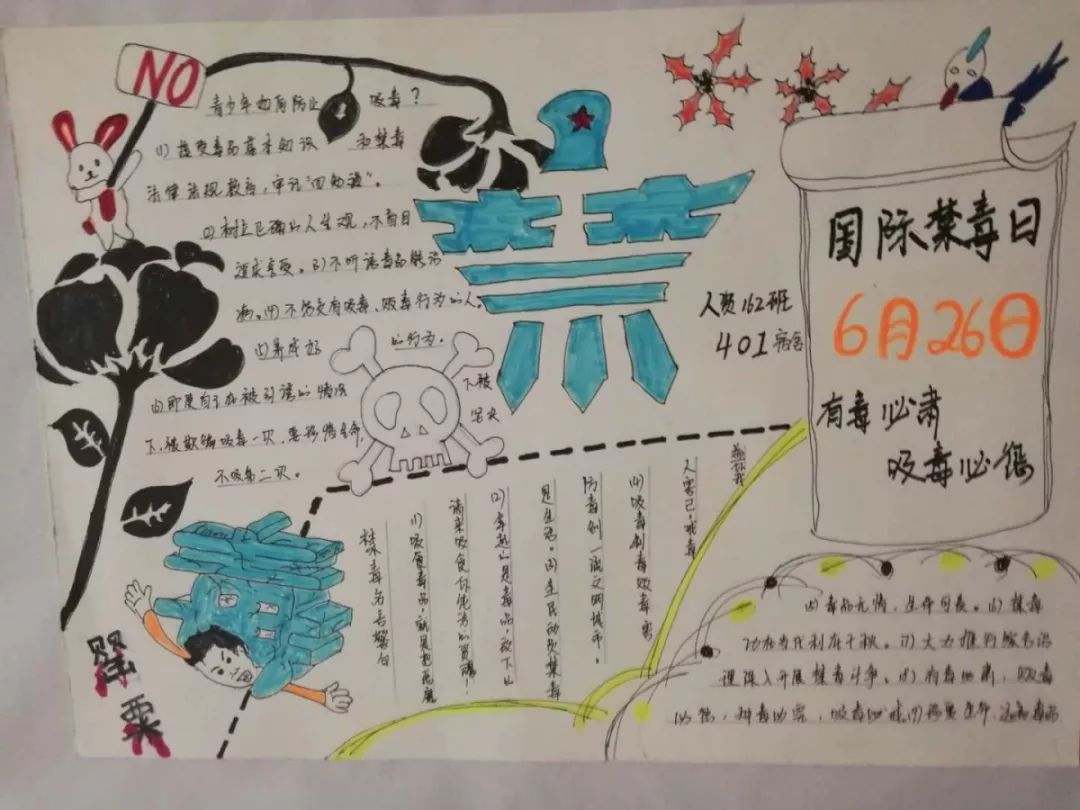 NO
青少年如何防止吸毒?
(1)接受毒品基本知识和禁毒
法律法规教育,牢记“四知道”。
(2)树立正确的人生观,不盲目
追求享受。(3)不听信毒品能治
病。(4)不结交有吸毒、贩毒行为的人。
(5)养成好的行为。
(6)即使自己在被引诱的情况下被
下,被欺骗吸毒一次,要珍惜生命,
不吸第二次。
禁
人资162班
401宿舍
国际禁毒日
6月26日
有毒必肃
吸毒必惩
禁毒
罂粟
禁毒为言警句
(1)吸食毒品,就是
请来吸食你生命的
(2)拿起的是毒品,放下的
是生活。(3)全民动员禁毒
防毒,创一流文明城市。
(4)吸毒制毒贩毒害
人害己,戒毒
(5)毒品无情,生命可畏。(6)禁毒
功在当代利在千秋。(7)大力推行综合治
理深入开展禁毒斗争。(8)有毒必肃,贩毒
必惩,种毒必究,吸毒必戒(9)珍爱生命,远离毒品